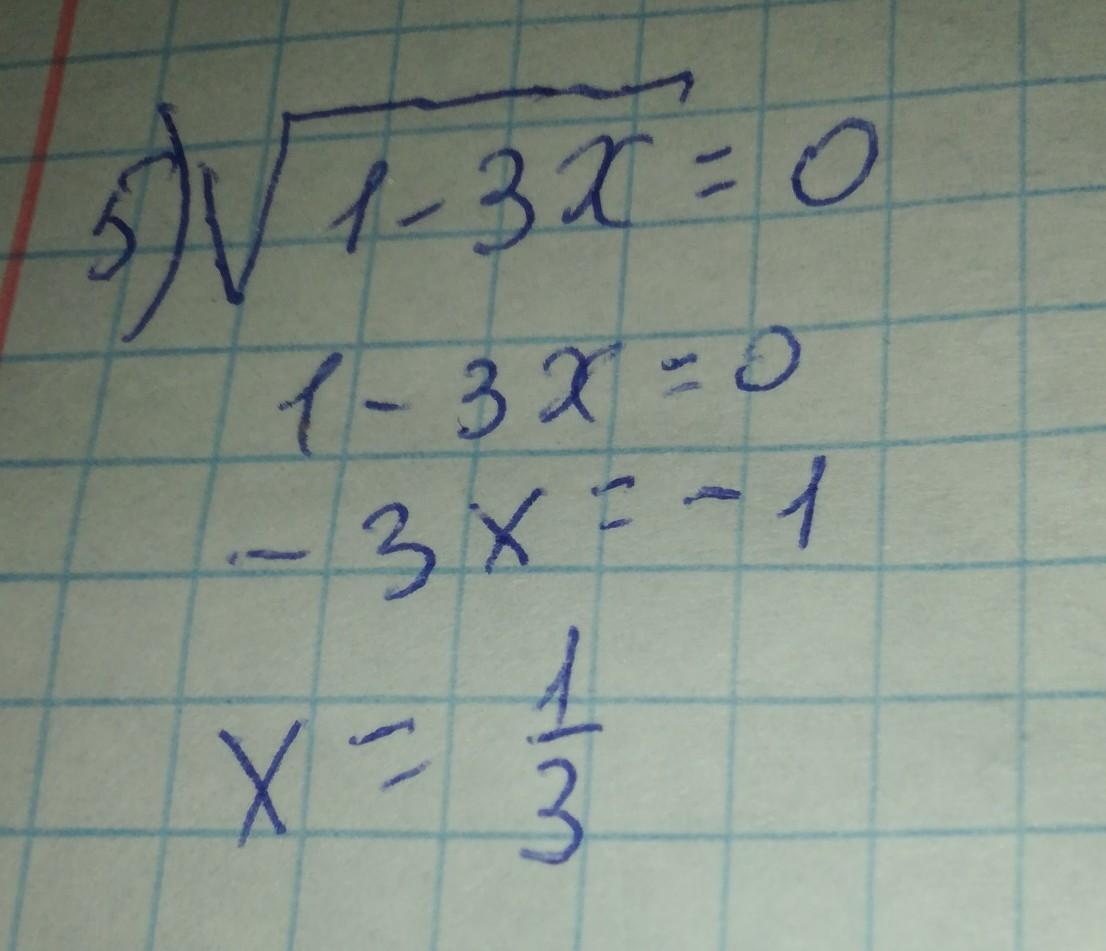 5) √1-3x = 0
1 - 3x = 0
- 3x = - 1
x = 1/3